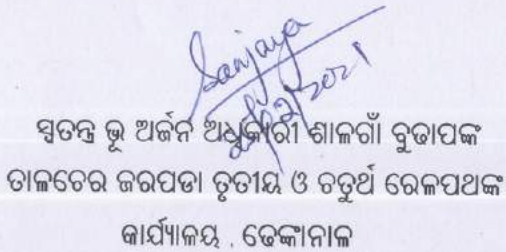 Sanjaya
ସ୍ୱତନ୍ତ୍ର ଭୂ ଅର୍ଜନ ଅଧିକାରୀ ଶାଳଗାଁ ବୁଢାପଙ୍କ
ତାଳଚେର ଜରପଡା ତୃତୀୟ ଓ ଚତୁର୍ଥ ରେଳପଥଙ୍କ
କାର୍ଯ୍ୟାଳୟ , ଢେଙ୍କାନାଳ